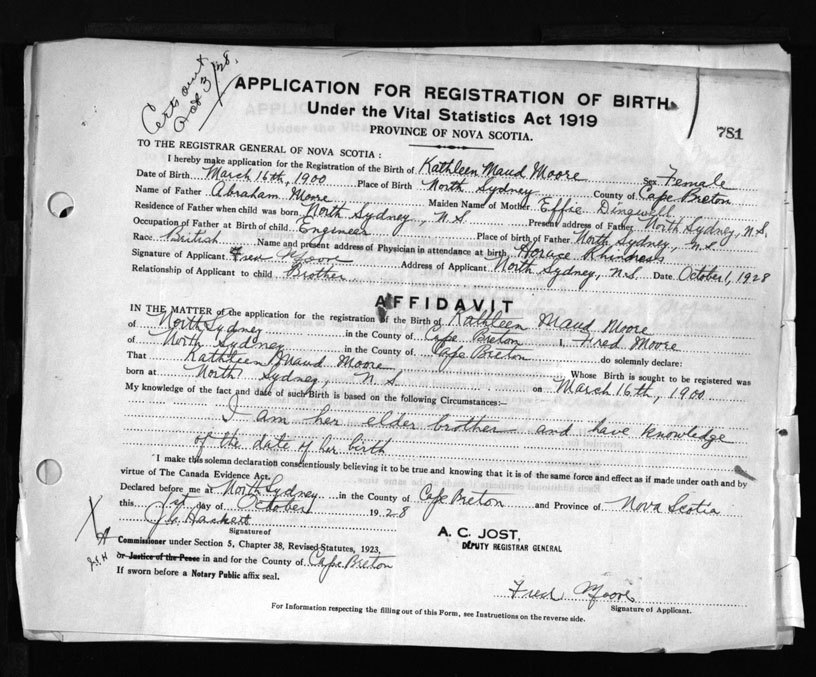 Certs out
Oct 3/28.
APPLICATION FOR REGISTRATION OF BIRTH
Under the Vital Statistics Act 1919
PROVINCE OF NOVA SCOTIA.
781
TO THE REGISTRAR GENERAL OF NOVA SCOTIA:
I hereby make application for the Registration of the Birth of Kathleen Maud Moore Sex Female
Date of Birth March 16th, 1900 Place of Birth North Sydney County of Cape Breton
Name of Father Abraham Moore Maiden Name of Mother Effie Dingwell
Residence of Father when child was born North Sydney, N.S. Present address of Father North Sydney, N.S.
Occupation of Father at Birth of child Engineer Place of birth of Father North Sydney, N.S.
Race British Name and present address of Physician in attendance at birth Horace Rhindress
Signature of Applicant Fred Moore Address of Applicant North Sydney, N.S. Date October 1, 1928
Relationship of Applicant to child Brother
AFFIDAVIT
IN THE MATTER of the application for the registration of the Birth of Kathleen Maud Moore
of North Sydney in the County of Cape Breton I, Fred Moore
of North Sydney in the County of Cape Breton do solemnly declare:
That Kathleen Maud Moore Whose Birth is sought to be registered was
born at North Sydney, N S on March 16th, 1900
My knowledge of the fact and date of such Birth is based on the following Circumstances:—
I am her elder brother and have knowledge
of the date of her birth
I make this solemn declaration conscientiously believing it to be true and knowing that it is of the same force and effect as if made under oath and by
virtue of The Canada Evidence Act.
Declared before me at North Sydney in the County of Cape Breton and Province of Nova Scotia
this 1st day of October 1928
Hackett
Signature of
A. C. JOST,
DEPUTY REGISTRAR GENERAL
A Commissioner under Section 5, Chapter 38, Revised Statutes, 1923,
or Justice of the Peace in and for the County of Cape Breton
If sworn before a Notary Public affix seal.
Fred Moore
Signature of Applicant.
For Information respecting the filling out of this Form, see Instructions on the reverse side.